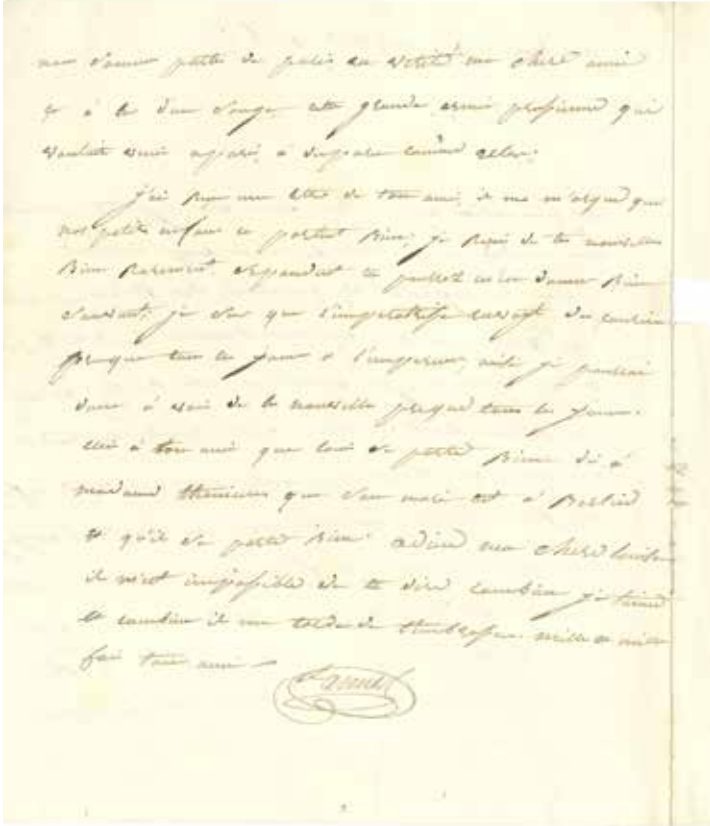 nous somme partis de paris en verité ma chere amie
s a de d'un songe cette grande armée prusienne qui
voulait venir a paris a disparu comme
j'ai Reçu une lettre de ton ami, il me marque que
nos petits enfans ce portent Bien, je Reçoi de tes nouvelles
Bien Rarement, cependant tu pourrez m'en donner Bien
souvant, je sai que l'imperatrise envoyt des courriers
presque tous les jours a l'empereur, ainsi je pourrai
donc avoir de tes nouvelles presque tous les jours.
dis à ton ami que loui se porte Bien dis à
madame thenieres que son mari est à Berlin
et qu'il se porte Bien. adieu ma chere louise
il m'est impossible de te dire combien je t'aime
et combien il me tarde de t'embrasser. mille et mille
foi ton ami
Lannes